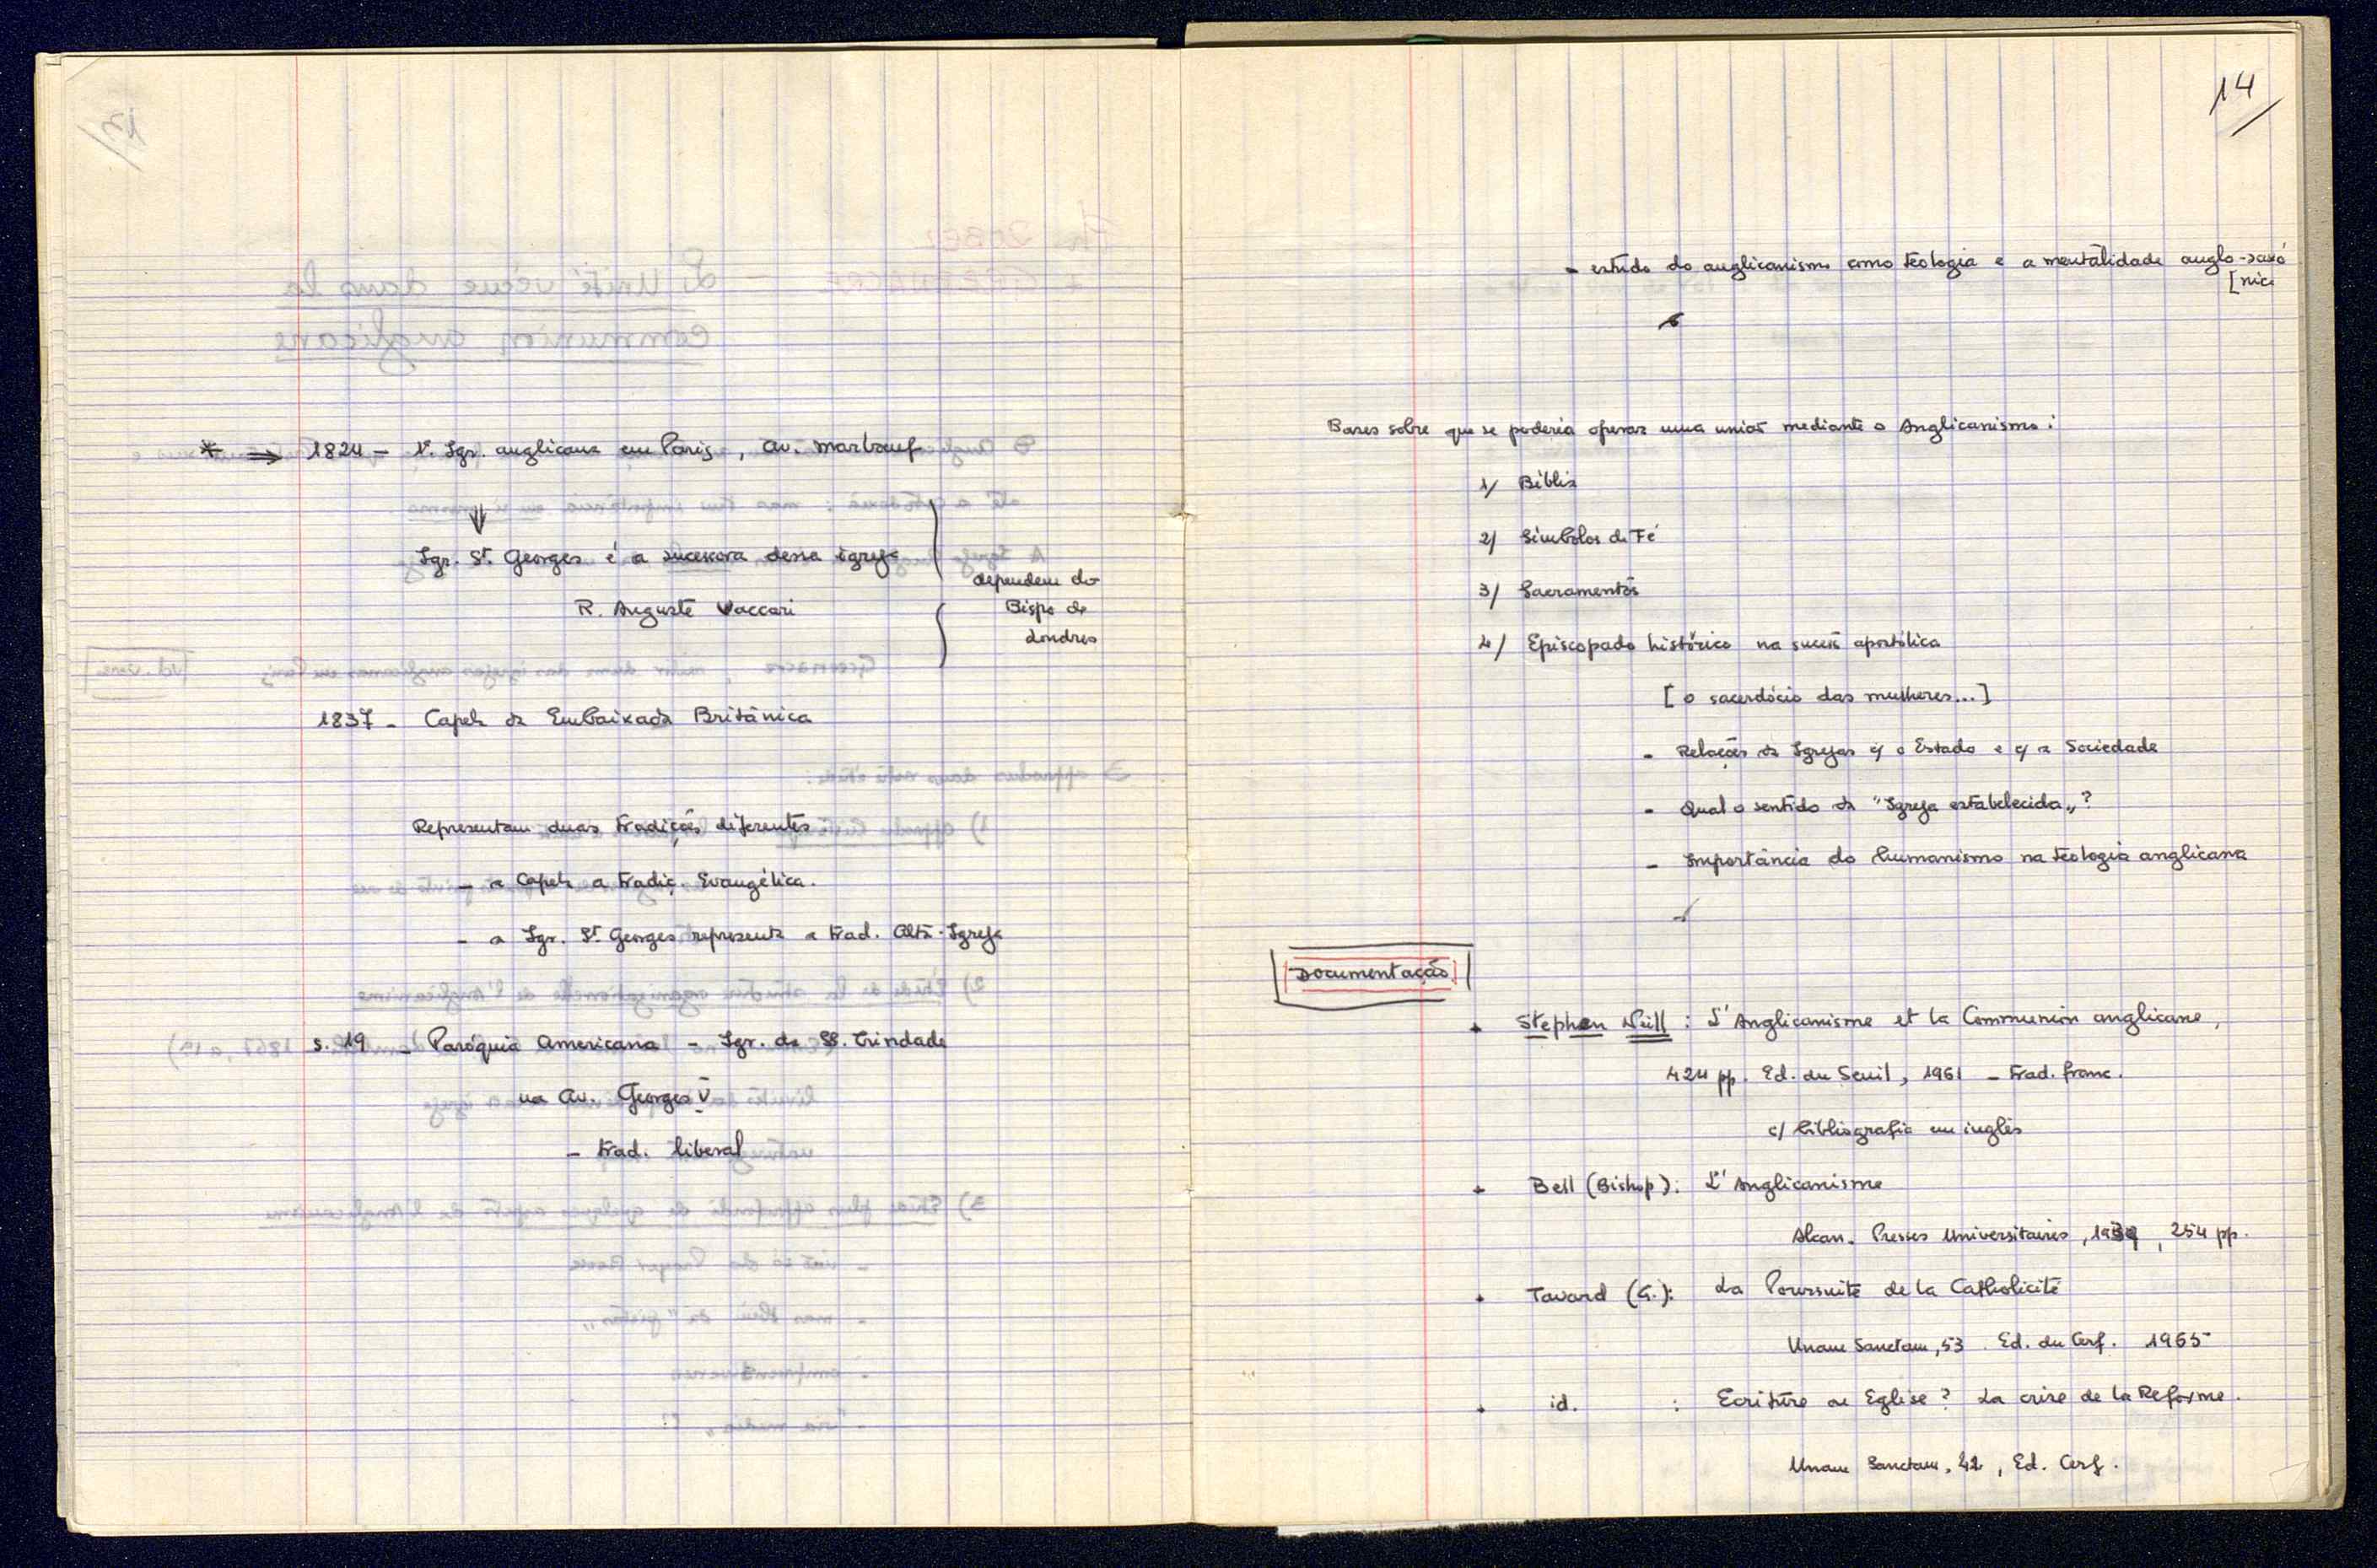 * ⇒ 1824 – 1ª. Igr. anglicana em Paris, Av. Marbœuf
⇓
Igr. St. Georges é a sucessora dessa igreja
R. Auguste Vaccari
dependem do
Bispo de
Londres
1837 – Capela da Embaixada Britânica
Representam duas tradições diferentes
– a Capela a tradiç. Evangélica.
– a Igr. St. Georges representa a trad. Alta-Igreja
s. 19 – Paróquia Americana – Igr. da SS. Trindade
na Av. Georges V
– trad. liberal
14
– estudo do anglicanismo como teologia e a mentalidade anglo-saxó
[nica
Bases sobre que se poderia operar uma união mediante o Anglicanismo:
1/ Bíblia
2/ Símbolos da Fé
3/ Sacramentos
4/ Episcopado histórico na sucess. apostólica
[o sacerdócio das mulheres...]
– Relações da Igrejas c/ o Estado e c/ a Sociedade
– Qual o sentido da "Igreja estabelecida„?
– Importância do humanismo na teologia anglicana
Documentação
• Stephen Neill : L'Anglicanisme et la Communion anglicane,
424 pp. Ed. du Seuil, 1961 – trad. franc.
c/ bibliografia em inglês
• Bell (Bishop): L'Anglicanisme
Alcan. Presses Universitaires, 1939, 254 pp.
• Tavard (G.): La Poursuite de la Catholicité
Unam Sanctam, 53. Ed. du Cerf. 1965
• id. : Ecriture ou Eglise? La crise de la Réforme.
Unam Sanctam, 42, Ed. Cerf.